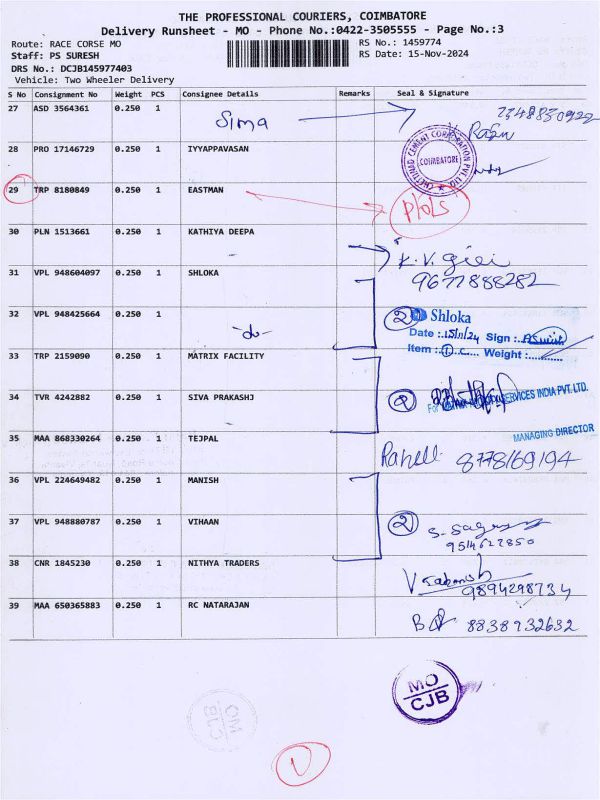 THE PROFESSIONAL COURIERS, COIMBATORE
Delivery Runsheet - MO - Phone No.:0422-3505555 - Page No.:3
Route: RACE CORSE MO
RS No.: 1459774
Staff: PS SURESH
RS Date: 15-Nov-2024
DRS No.: DCJB145977403
Vehicle: Two Wheeler Delivery
S No Consignment No Weight PCS Consignee Details Remarks Seal & Signature
27 ASD 3564361 0.250 1 Sima
28 PRO 17146729 0.250 1 IYYAPPAVASAN
CHETTINAD CEMENT CORPORATION PVT. LTD.
COIMBATORE
29 TRP 8180849 0.250 1 EASTMAN
30 PLN 1513661 0.250 1 KATHIYA DEEPA
K. V. Giri
9677888282
31 VPL 948604097 0.250 1 SHLOKA
32 VPL 948425664 0.250 1 -do-
2 Shloka
Date : 15/11/24 Sign :
Item : 1 Weight :
33 TRP 2159090 0.250 1 MATRIX FACILITY
34 TVR 4242882 0.250 1 SIVA PRAKASHJ
2
SERVICES INDIA PVT. LTD.
MANAGING DIRECTOR
35 MAA 868330264 0.250 1 TEJPAL
8778169194
36 VPL 224649482 0.250 1 MANISH
37 VPL 948880787 0.250 1 VIHAAN
2
9514627850
38 CNR 1845230 0.250 1 NITHYA TRADERS
9894298734
39 MAA 650365883 0.250 1 RC NATARAJAN
8838932632
MO
CJB
MO
CJB